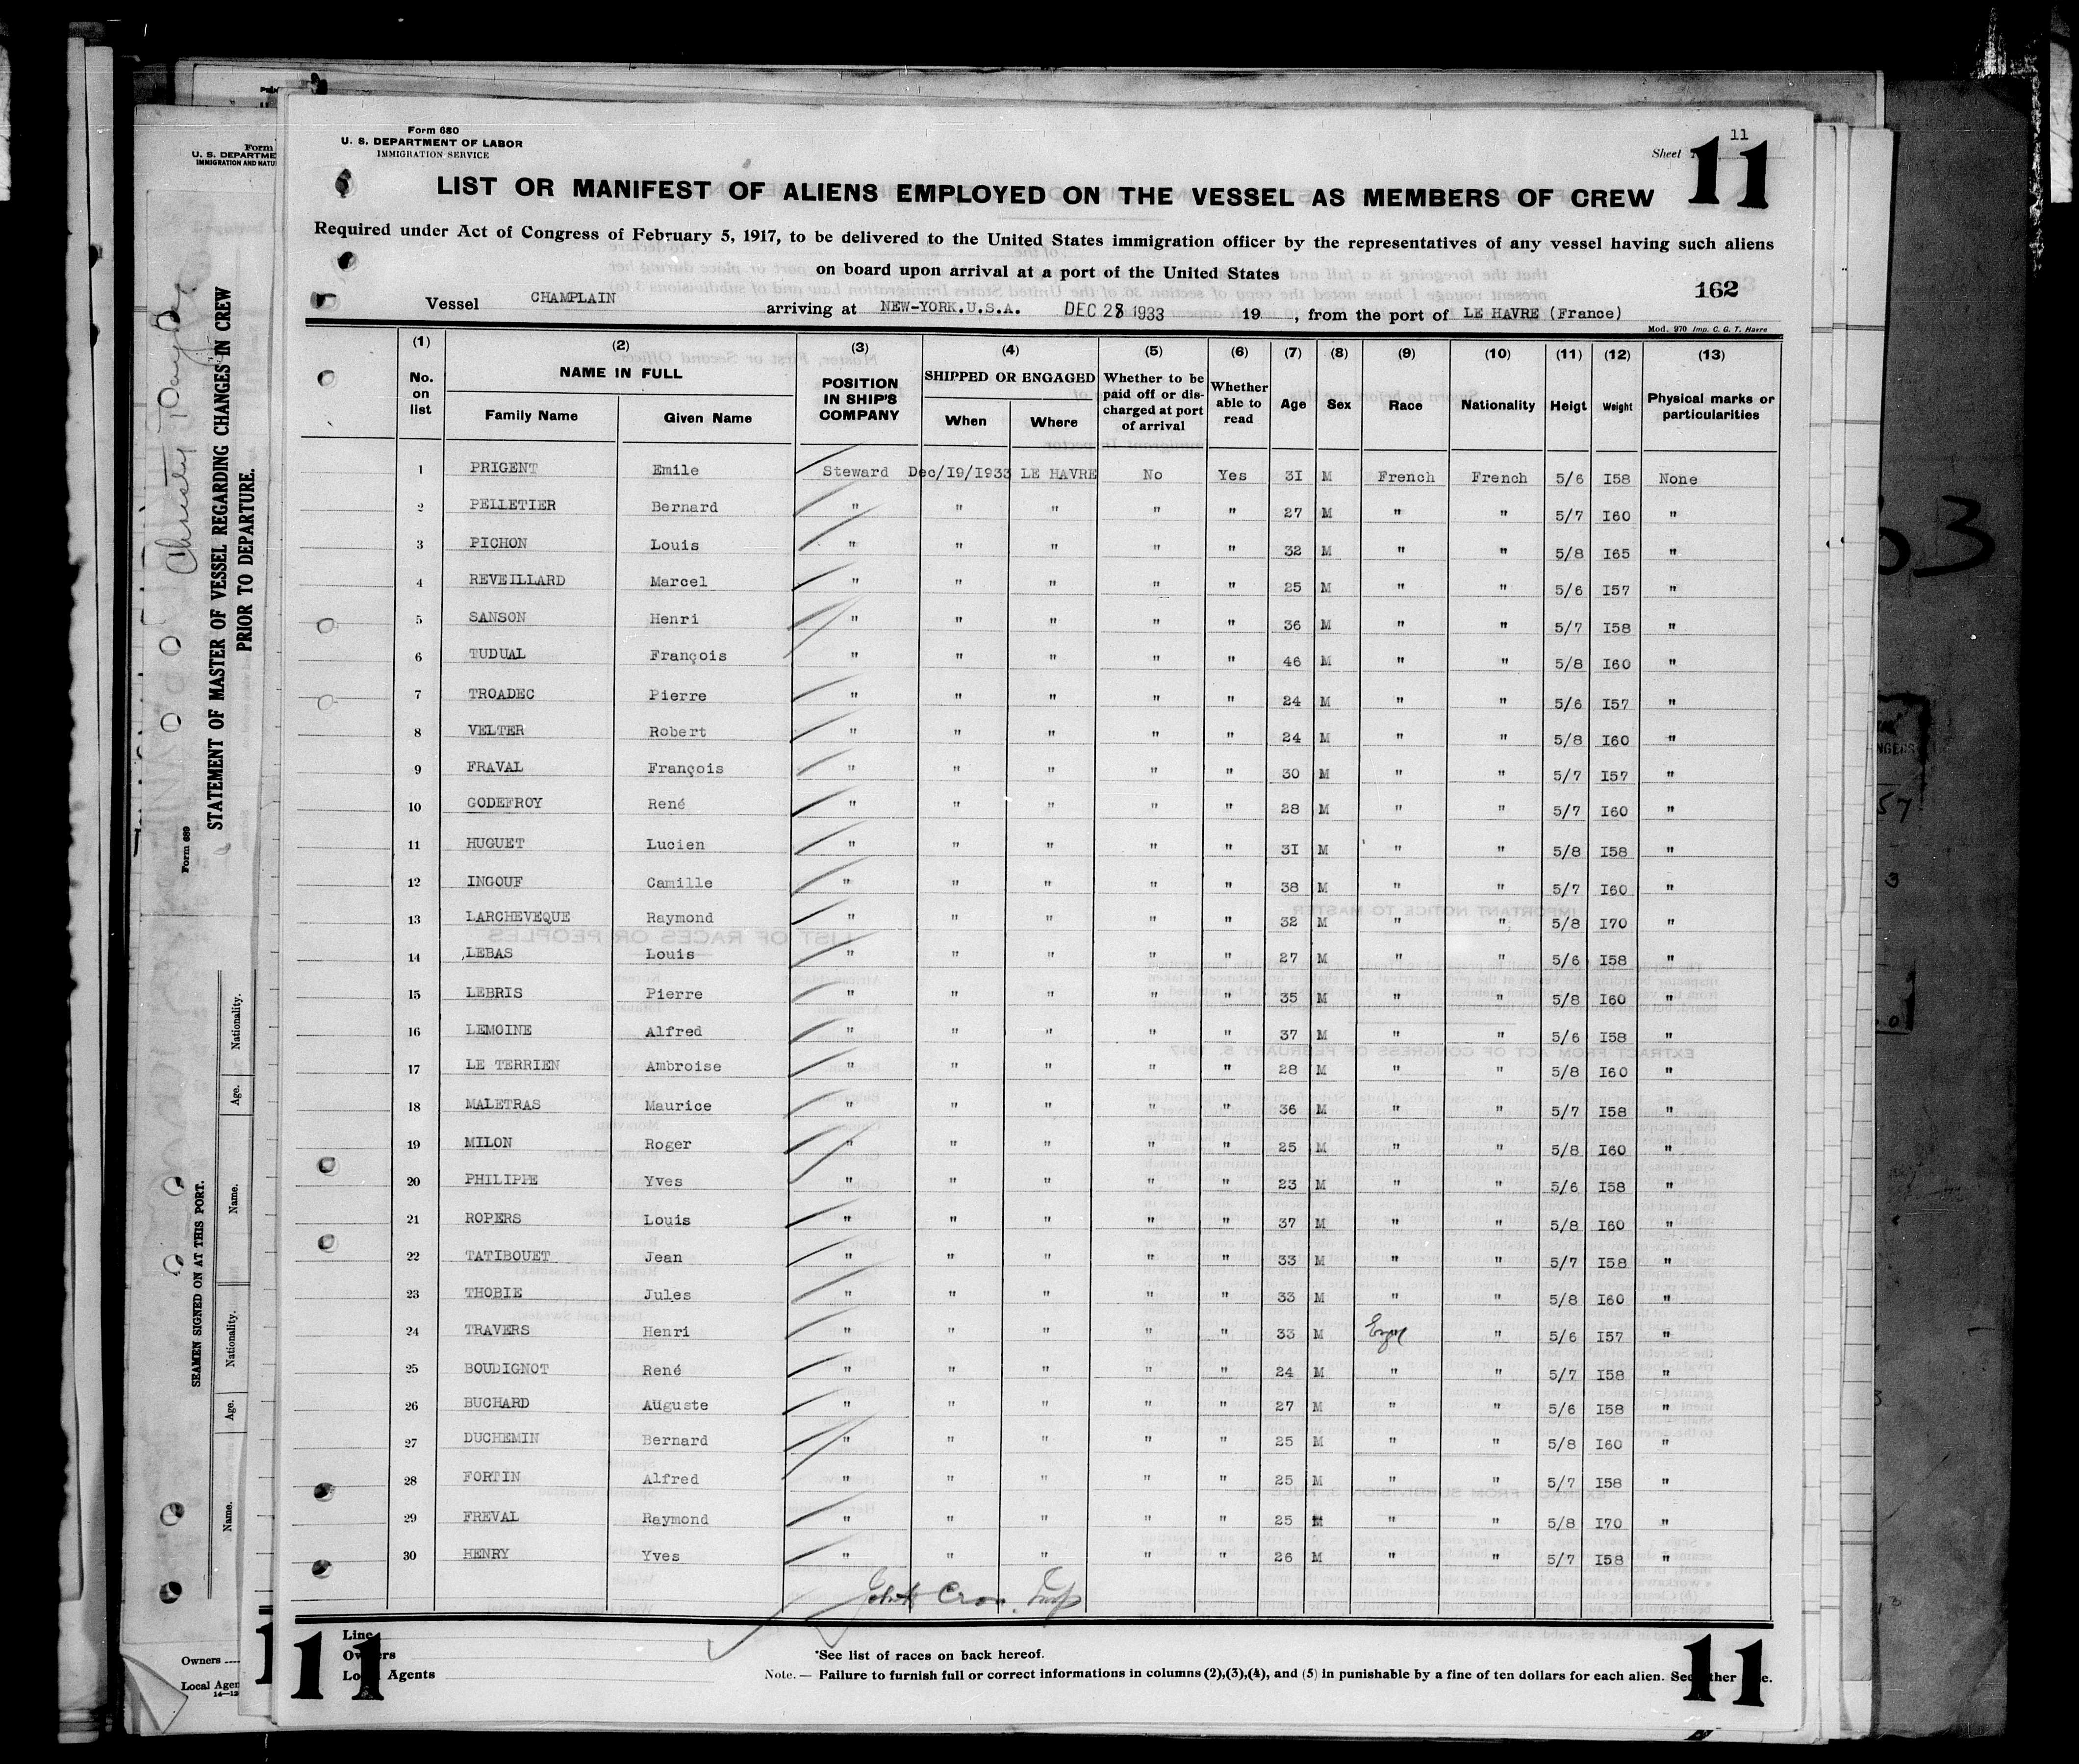 Form 680
U. S. DEPARTMENT OF LABOR
IMMIGRATION SERVICE
11
Sheet
11
LIST OR MANIFEST OF ALIENS EMPLOYED ON THE VESSEL AS MEMBERS OF CREW
Required under Act of Congress of February 5, 1917, to be delivered to the United States immigration officer by the representatives of any vessel having such aliens
on board upon arrival at a port of the United States
162
Vessel CHAMPLAIN arriving at NEW-YORK.U.S.A. DEC 28 1933 19 , from the port of LE HAVRE (France)
Mod. 970 Imp. C. G. T. Havre
(1) (2) (3) (4) (5) (6) (7) (8) (9) (10) (11) (12) (13)
No. on list NAME IN FULL Family Name Given Name POSITION IN SHIP'S COMPANY SHIPPED OR ENGAGED When Where Whether to be paid off or discharged at port of arrival Whether able to read Age Sex Race Nationality Heigt Weight Physical marks or particularities
1 PRIGENT Emile Steward Dec/19/1933 LE HAVRE No Yes 3I M French French 5/6 I58 None
2 PELLETIER Bernard " " " " " 27 M " " 5/7 I60 "
3 PICHON Louis " " " " " 32 M " " 5/8 I65 "
4 REVEILLARD Marcel " " " " " 25 M " " 5/6 I57 "
5 SANSON Henri " " " " " 36 M " " 5/7 I58 "
6 TUDUAL François " " " " " 46 M " " 5/8 I60 "
7 TROADEC Pierre " " " " " 24 M " " 5/6 I57 "
8 VELTER Robert " " " " " 24 M " " 5/8 I60 "
9 FRAVAL François " " " " " 30 M " " 5/7 I57 "
10 GODEFROY René " " " " " 28 M " " 5/7 I60 "
11 HUGUET Lucien " " " " " 3I M " " 5/8 I58 "
12 INGOUF Camille " " " " " 38 M " " 5/7 I60 "
13 LARCHEVEQUE Raymond " " " " " 32 M " " 5/8 I70 "
14 LEBAS Louis " " " " " 27 M " " 5/6 I58 "
15 LEBRIS Pierre " " " " " 35 M " " 5/8 I60 "
16 LEMOINE Alfred " " " " " 37 M " " 5/6 I58 "
17 LE TERRIEN Ambroise " " " " " 28 M " " 5/8 I60 "
18 MALETRAS Maurice " " " " " 36 M " " 5/7 I58 "
19 MILON Roger " " " " " 25 M " " 5/8 I60 "
20 PHILIPPE Yves " " " " " 23 M " " 5/6 I58 "
21 ROPERS Louis " " " " " 37 M " " 5/8 I60 "
22 TATIBOUET Jean " " " " " 33 M " " 5/7 I58 "
23 THOBIE Jules " " " " " 33 M " " 5/8 I60 "
24 TRAVERS Henri " " " " " 33 M " 5/6 I57 "
25 BOUDIGNOT René " " " " " 24 M " " 5/7 I58 "
26 BUCHARD Auguste " " " " " 27 M " " 5/6 I58 "
27 DUCHEMIN Bernard " " " " " 25 M " " 5/8 I60 "
28 FORTIN Alfred " " " " " 25 M " " 5/7 I58 "
29 FREVAL Raymond " " " " " 25 M " " 5/8 I70 "
30 HENRY Yves " " " " " 26 M " " 5/7 I58 "
Line
Owners
Local Agents
*See list of races on back hereof.
Note. — Failure to furnish full or correct informations in columns (2),(3),(4), and (5) in punishable by a fine of ten dollars for each alien.
11
11
Form
U. S. DEPARTME
IMMIGRATION AND NATU
STATEMENT OF MASTER OF VESSEL REGARDING CHANGES IN CREW
PRIOR TO DEPARTURE.
Form 689
SEAMEN SIGNED ON AT THIS PORT.
Name. Age. Nationality. Name. Age. Nationality.
Owners
Local Agen
14—12